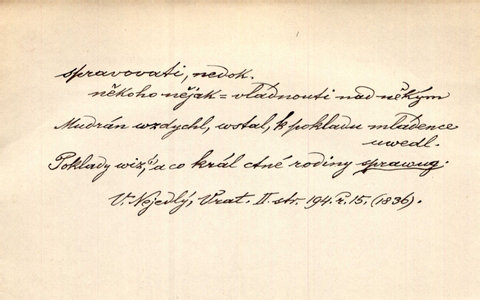 spravovati, nedok.
někoho nějak = vládnouti nad někým
Mudrán wzdychl, wstal, k pokladu mládence
uwedl.
Poklady wiz, a co král ctné rodiny sprawug.
V. Nejedlý, Vrat. II. str. 194. ř. 15. (1836).